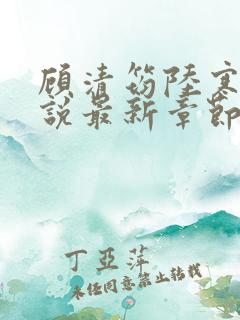 顾清笏陆寒
说最新章节
丁亚萍
未经同意禁止转载